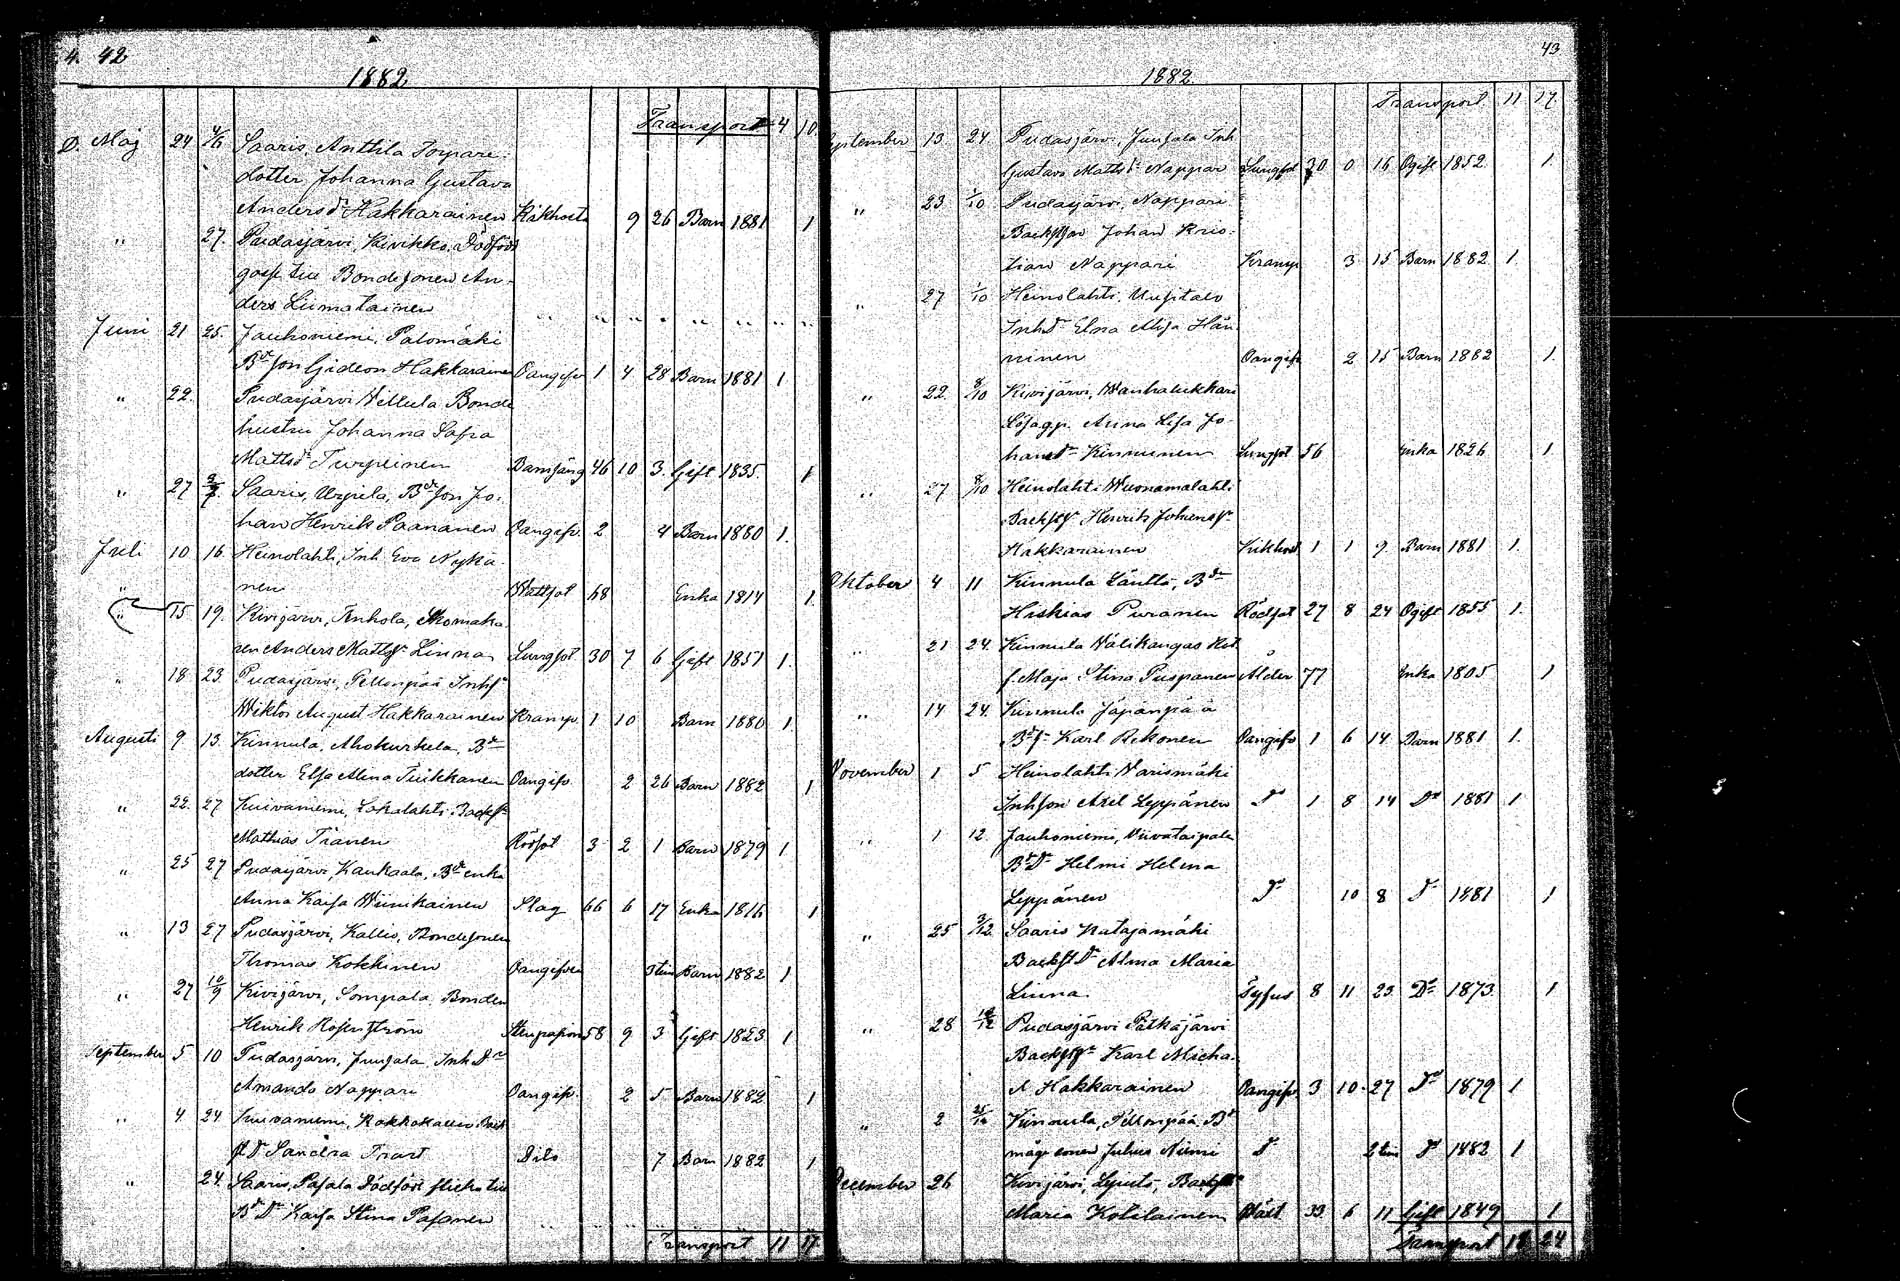 4. 42
1882
Transport 4 10.
D. Maj 24 4/6 Saaris, Anttila Torpare-
dotter Johanna Gustava
Andersdr Hakkarainen Kikhosta 9 26 Barn 1881 1
" 27. Pudasjärvi, Kivikko, Dödfödt
gossf. till Bondesonen An-
ders Liimatainen " " " " " " " "
Juni 21 25. Jauhoniemi, Palomäki
Bdeson Gideon Hakkarainen Oangifv 1 4 28 Barn 1881 1
" 22. Pudasjärvi Bonde
hustru Johanna Sofia
Mattsdr Turpeinen Barnsäng 46 10 3. Gift 1835. 1
" 27 2/7 Saaris, Urpila, Bdeson Jo-
han Henrik Paananen Oangifv. 2 4 Barn 1880 1.
Juli 10 16 Heinolahti, Inh Eva Nykä-
nen Wattsot 68 Enka 1814 1.
" 15 19. Kivijärvi, Anhola, Skomaka-
ren Anders Mattss Linna Lungsot. 30 7 6 Gift 1851 1.
" 18 23. Pudasjärvi, Pellonpää Inhs
Wiktor August Hakkarainen Kramp. 1 10 Barn 1880 1.
Augusti 9 13. Kinnula, Ahokurkela, Bde
dotter Elsa Alina Tiikkanen Oangifv. 2 26 Barn 1882 1
" 22. 27 Kuivaniemi, Lokalahti Backs
Mathias Tiänen Rödsot 3 2 1 Barn 1879 1
" 25 27 Pudasjärvi, Kaukaala, Bde enka
Anna Kaisa Wiinikainen Slag 66 6 17 Enka 1816 1
" 13 27 Pudasjärvi, Kallio, Bondesonen
Thomas Kokkinen Oangifven 3 tim Barn 1882 1
" 27 10/9 Kivijärvi, Sompala Bonden
Henrik Rosenström 58 9 3 Gift 1823 1
September 5 10 Pudasjärvi, Juusala Inh Dr
Amanda Nappari Oangifv. 2 5 Barn 1882 1
" 4 24 Kuivaniemi, Kokkokallio Back
st Dr Sandra Dito 7 Barn 1882 1
" 24. Saaris, Pasala Dödfödt flicka till
Bde Dr Kaisa Stina Pasanen " " "
Transport 11 17.
43
1882.
Transport 11 17.
September 13 24 Pudasjärvi, Juusala Inh
Gustava Mattsdr Nappari Lungsot 30 0 16 Ogift 1852. 1.
" 23 1/10 Pudasjärvi, Nappari
Johan Kris-
tian Nappari Kramp 3 15 Barn 1882 1.
" 27 1/10 Heinolahti, Uusitalo
Inh Dr Elna Hän-
ninen Oangifv 2 15 Barn 1882 1.
" 22. 8/10 Kivijärvi, Wanhalukkari
Anna Lisa Jo-
hansdr Kinnunen Lungsot 56 Enka 1826 1
" 27 8/10 Heinolahti Wuonamalahti
Henrik Johanss
Hakkarainen Kikhost 1 1 9. Barn 1881 1.
Oktober 4 11 Kinnula Länttä, Bde
Hiskias Puranen Rödsot 27 8 24 Ogift 1855 1.
" 21 24. Kinnula Välikangas
f. Maja Stina Puspanen Ålder 77 Enka 1805 1
" 14 24. Kinnula Jäpänpää
Bdes Karl Rekonen Oangifv 1 6 14. Barn 1881 1.
November 1 5 Heinolahti Varismäki
Inhson Axel Leppänen Do 1 8 14 Do 1881 1
" 1 12. Jauhoniemi, Viivataipale
Bde Dr Helmi Helena
Leppänen Do 10 8 Do 1881 1
" 25 3/12 Saaris Katajamäki
Backst Dr Alma Maria
Linna. Tyfus 8 11 23. Do 1873. 1
" 28 10/12 Pudasjärvi Pätkäjärvi
Karl Micha-
el Hakkarainen Oangifv. 3 10 27 Do 1879 1
" 2 Kinnula, Pellonpää, Bde
mågs sonen Julius Niemi Do 2 tim Do 1882 1
December 26 Kivijärvi,
Maria Kotilainen 33 6 11 Gift 1849 1
Transport 18 24